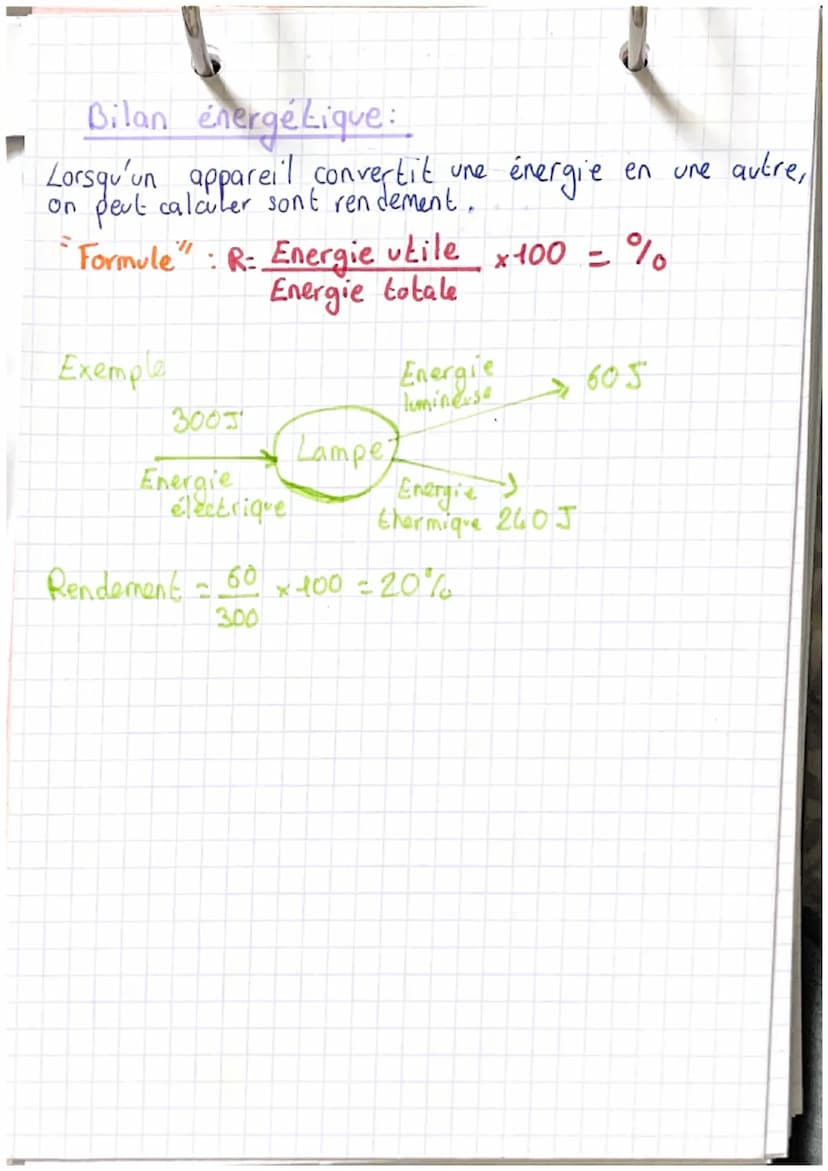 Bilan énergétique:
Lorsqu'un appareil convertit une énergie en une autre,
on peut calculer sont rendement.
"Formule" : R= Energie utile x100 = %
Energie totale
Exemple
Energie
lumineuse
60J
300J
Lampe
Energie
électrique
Energie
thermique 240J
Rendement = 60 x 100 = 20%
300